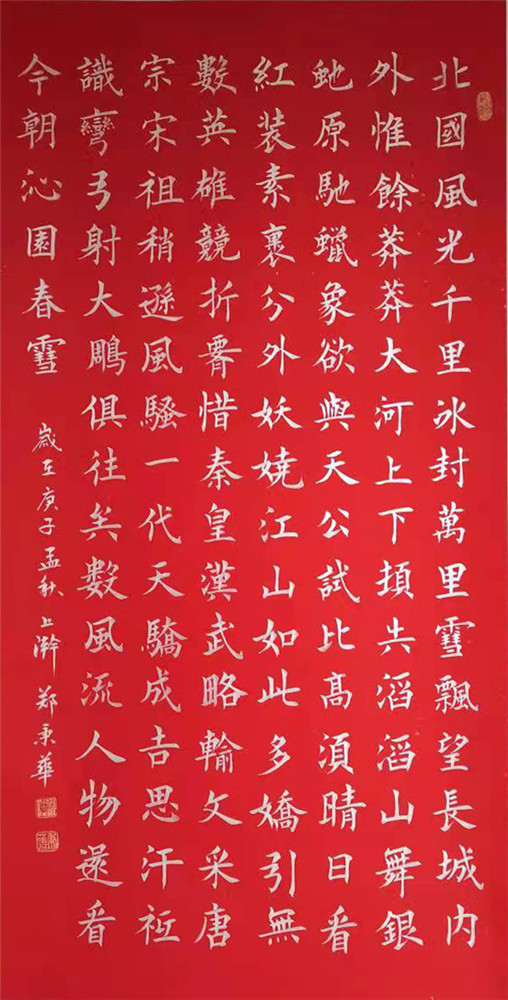 北國風光千里冰封萬里雪飄望長城内
外惟餘莽莽大河上下頓失滔滔山舞銀
虵原馳蠟象欲與天公試比高湏晴日看
紅装素裹分外妖嬈江山如此多嬌引無
數英雄競折腰惜秦皇漢武略輸文采唐
宗宋祖稍遜風騷一代天驕成吉思汗祗
識彎弓射大鵰俱往矣数風流人物還看
今朝沁園春雪
歲在庚子孟秋上澣郑秉華